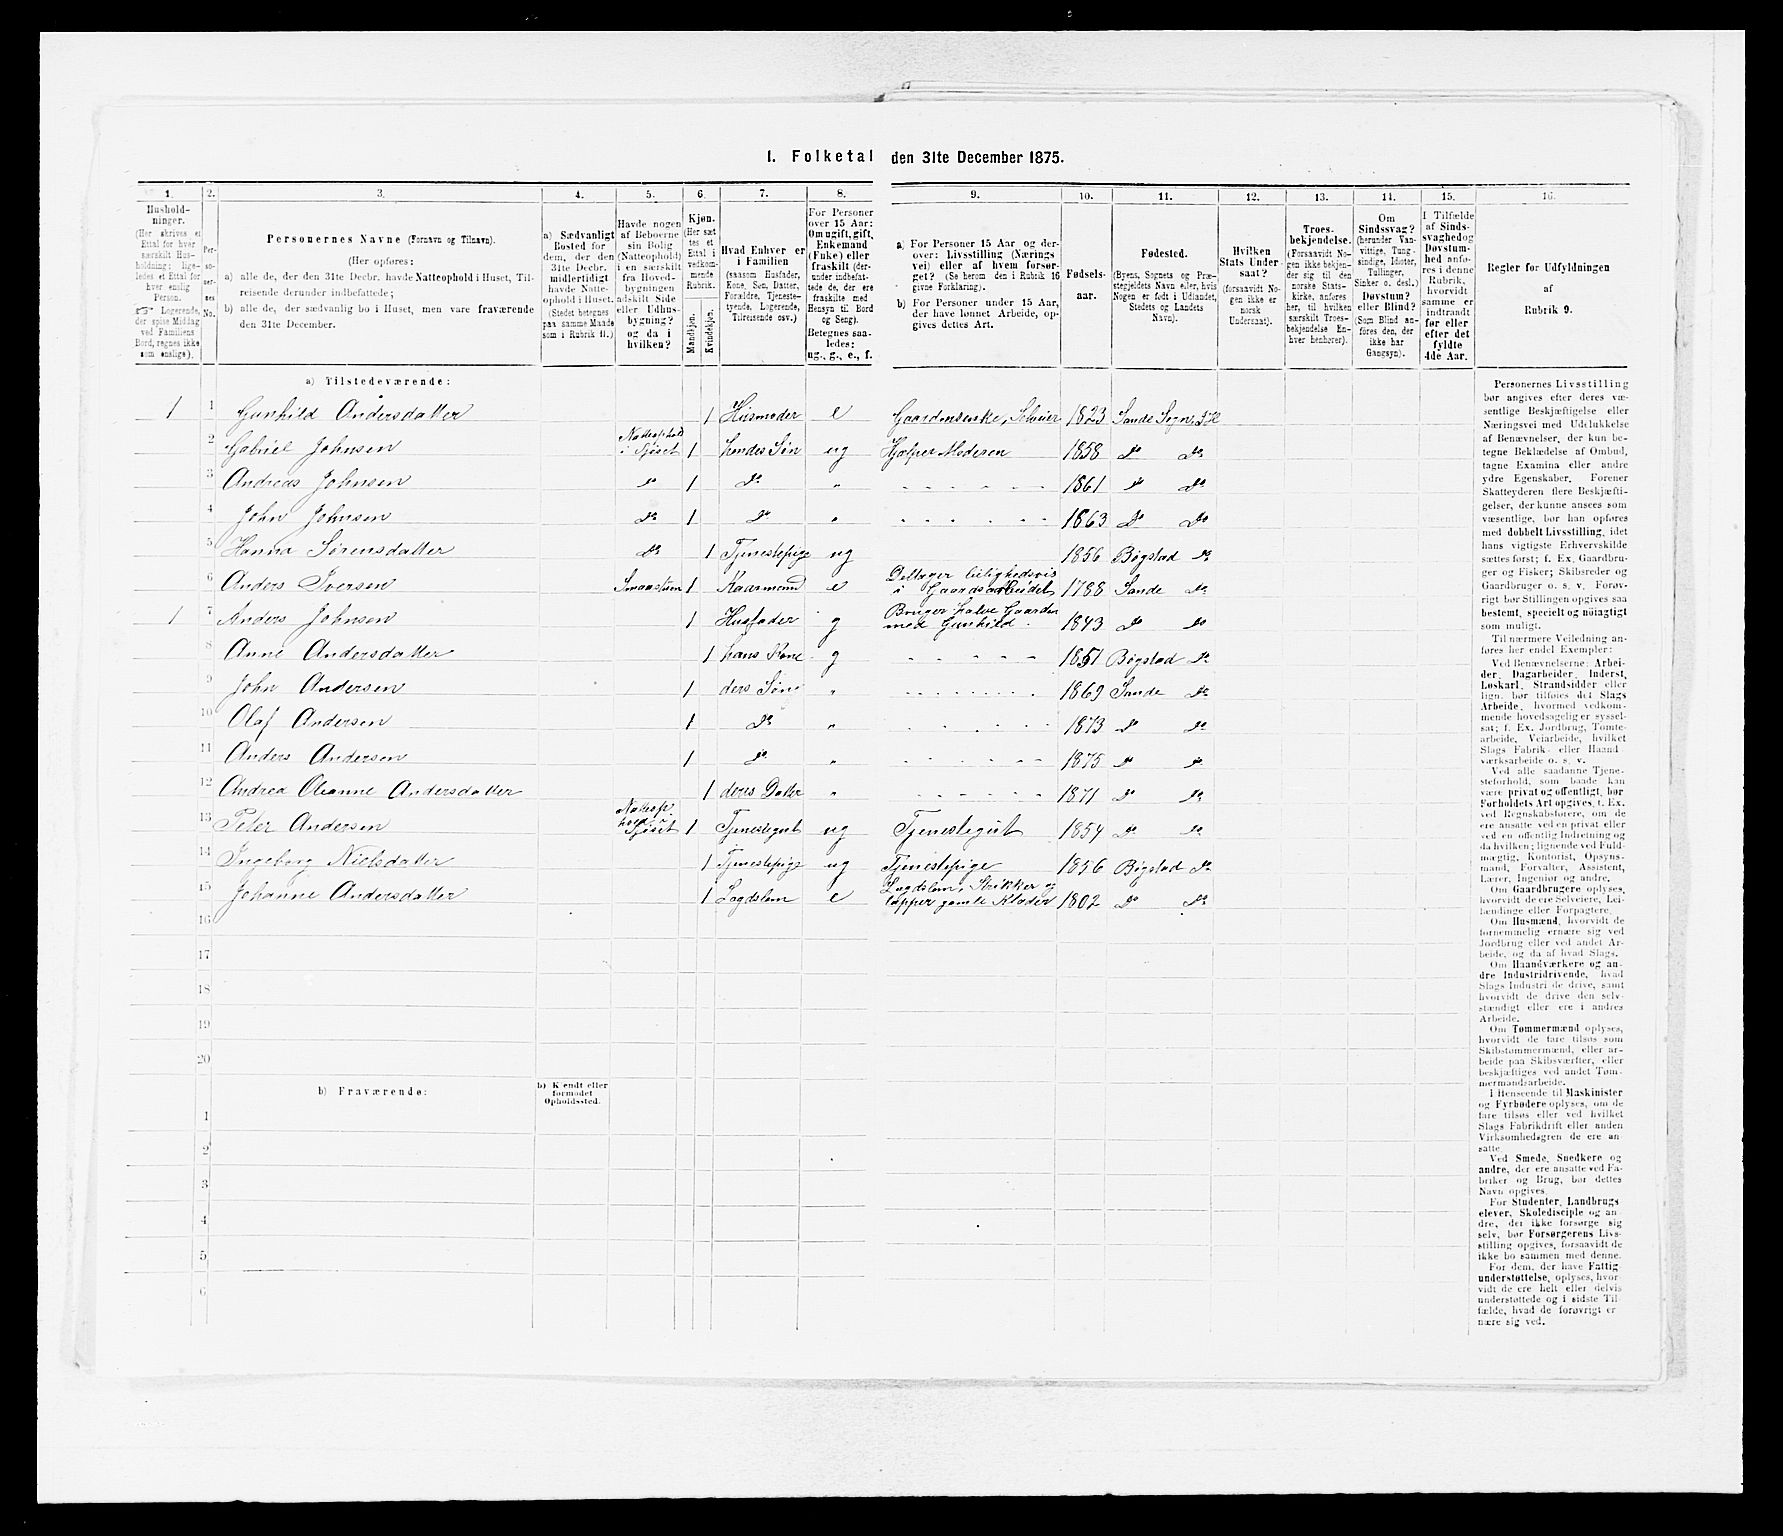 I. Folketal den 31te December 1875.
1. 2. 3. 4. 5. 6. 7. 8. 9. 10. 11. 12. 13. 14. 15. 16.
Husholdninger.
(Her skrives et
Ettal for hver
særskilt Husholdning;
ligeledes et Ettal for
hver enslig
Person.
☞ Logerende,
der spise Middag
ved Familiens
Bord, regnes ikke
som enslige).
Personernes No.
Personernes Navne (Fornavn og Tilnavn).
(Her opføres:
a) alle de, der den 31te Decbr. havde Natteophold i Huset, Tilreisende derunder indbefattede;
b) alle de, der sædvanlig bo i Huset, men vare fraværende
den 31te December.
a) Sædvanligt
Bosted for
dem, der den
31te Decbr.
midlertidigt
havde Natteophold
i Huset.
(Stedet betegnes
paa samme Maade
som i Rubrik 11.)
Havde nogen
af Beboerne
sin Bolig
(Natteophold)
i en særskilt
fra Hovedbygningen
adskilt Side
eller Udhusbygning?
og da i
hvilken?
Kjøn.
(Her sættes et
Ettal i
vedkommende
Rubrik.
Mandkjøn.
Kvindekjøn.
Hvad Enhver er
i Familien
(saasom Husfader,
Kone, Søn, Datter,
Forældre, Tjenestetyende,
Logerende,
Tilreisende osv.)
For Personer
over 15 Aar:
Om ugift, gift,
Enkemand
(Enke) eller
fraskilt (derunder
indbefattede
de, der ere
fraskilte med
Hensyn til Bord
og Seng).
Betegnes saaledes:
ug., g., e., f.
a) For Personer 15 Aar og derover:
Livsstilling (Næringsvei)
eller af hvem forsørget?
(Se herom den i Rubrik 16
givne Forklaring).
b) For Personer under 15 Aar,
der have lønnet Arbeide, opgives
dettes Art.
Fødselsaar.
Fødested.
(Byens, Sognets og Præstegjeldets
Navn eller, hvis
Nogen er født i Udlandet,
Stedets og Landets
Navn).
Hvilken
Stats Undersaat?
(forsaavidt Nogen
ikke er
norsk
Undersaat).
Troesbekjendelse.
(Forsaavidt Nogen
ikke bekjender
sig til den
norske Statskirke,
anføres
her, til hvilken
særskilt Troesbekjendelse
Enhver
henhører).
Om
Sindssvag?
(herunder Vanvittige,
Tungsindige,
Idioter,
Tullinger,
Sinker o. desl.)
Døvstum?
eller Blind?
(Som Blind anføres
den, der
ikke har
Gangsyn).
I Tilfælde
af Sindssvaghed og
Døvstumhed
anføres
i denne
Rubrik,
hvorvidt
samme er
indtraadt
før eller
efter det
fyldte
4de Aar.
Regler for Udfyldningen
af
Rubrik 9.
a) Tilstedeværende:
1 1 Gunhild Andersdatter 1 Husmoder e Gaardmenske, Selveier 1823 Sande Sogn
2 Gabriel Johnsen Natteophold i Sjøset 1 hendes Søn ug Hjælper Moderen 1858 Do Do
3 Andreas Johnsen Do 1 Do " 1861 Do Do
4 John Johnsen Do 1 Do " 1863 Do Do
5 Hanna Sørensdatter Do 1 Tjenestepige ug 1856 Bøgstad Do
6 Anders Iversen Smaastuen 1 Kaarmand e Deltager leilighedsvis i Gaardsarbeidet 1788 Sande Do
1 7 Anders Johnsen 1 Husfader g Bruger halve Gaarden med Gunhild. 1843 Do Do
8 Anne Andersdatter 1 hans Kone g 1851 Bøgstad Do
9 John Andersen 1 ders Søn " 1869 Sande Do
10 Olaf Andersen 1 Do " 1873 Do Do
11 Anders Andersen 1 Do " 1875 Do Do
12 Andrea Oleanne Andersdatter 1 deris Datter " 1871 Do Do
13 Peter Andersen Natteophold i Sjøset 1 Tjenestegut ug Tjenestegut 1854 Do Do
14 Ingeborg Nielsdatter 1 Tjenestepige ug Tjenestepige 1856 Bøgstad Do
15 Johanne Andersdatter 1 Lægdslem e Lægdslem, Strikker og lapper gamle Klæder 1802 Do Do
16
17
18
19
20
b) Fraværende:
b) Kjendt eller
formodet
Opholdssted.
1
2
3
4
5
6
Personernes Livsstilling
bør angives efter deres væsentlige
Beskjæftigelse eller
Næringsvei med Udelukkelse
af Benævnelser, der kun betegne
Beklædelse af Ombud,
tagne Examina eller andre
ydre Egenskaber. Forener
Skatteyderen flere Beskjæftigelser,
der kunne ansees som
væsentlige, bør han opføres
med dobbelt Livsstilling, idet
hans vigtigste Erhvervskilde
sættes først; f. Ex. Gaardbruger
og Fisker; Skibsreder og
Gaardbruger o. s. v. Forøvrigt
bør Stillingen opgives saa
bestemt, specielt og nøiagtigt
som muligt.
Til nærmere Veiledning anføres
her endel Exempler:
Ved Benævnelserne: Arbeider,
Dagarbeider, Inderst,
Løskarl, Strandsidder eller
lign. bør tilføies det Slags
Arbeide, hvormed vedkommende
hovedsagelig er sysselsat;
f. Ex. Jordbrug, Tomtearbeide,
Veiarbeide, hvilket
Slags Fabrik- eller Haandværksarbeide
o. s. v.
Ved alle saadanne Tjenesteforhold,
som baade kan
være privat og offentligt, bør
Forholdets Art opgives, t. Ex.
ved Regnskabsførere, om de
ere ansatte ved en privat eller
ved en offentlig Indretning og
da hvilken; lignende ved Fuldmægtig,
Kontorist, Opsynsmand,
Forvalter, Assistent,
Lærer, Ingeniør og andre.
Om Gaardbrugere oplyses,
hvorvidt de ere Selveiere, Leilændinge
eller Forpagtere.
Om Husmænd, hvorvidt de
fornemmelig ernære sig ved
Jordbrug eller ved andet Arbeide,
og da af hvad Slags.
Om Haandværkere og andre
Industridrivende, hvad
Slags Industri de drive, samt
hvorvidt de drive den selvstændigt
eller ere i andres
Arbeide.
Om Tømmermænd oplyses,
hvorvidt de fare tilsøs som
Skibstømmermænd, eller arbeide
paa Skibsværfter, eller
beskjæftiges ved andet Tømmermandsarbeide.
I Henseende til Maskinister
og Fyrbødere oplyses, om de
fare tilsøs eller ved hvilket
Slags Fabrikdrift eller anden
Virksomhedsgren de ere ansatte.
Ved Smede, Snedkere og
andre, der ere ansatte ved Fabriker
og Brug, bør dettes
Navn opgives.
For Studenter, Landbrugselever,
Skoledisciple og andre,
der ikke forsørge sig
selv, bør Forsørgerens Livsstilling
opgives, forsaavidt de
ikke bo sammen med denne.
For dem, der have Fattigunderstøttelse,
oplyses, hvorvidt
de ere helt eller delvis
understøttede og i sidste Tilfælde,
hvad de forøvrigt ernære
sig ved.